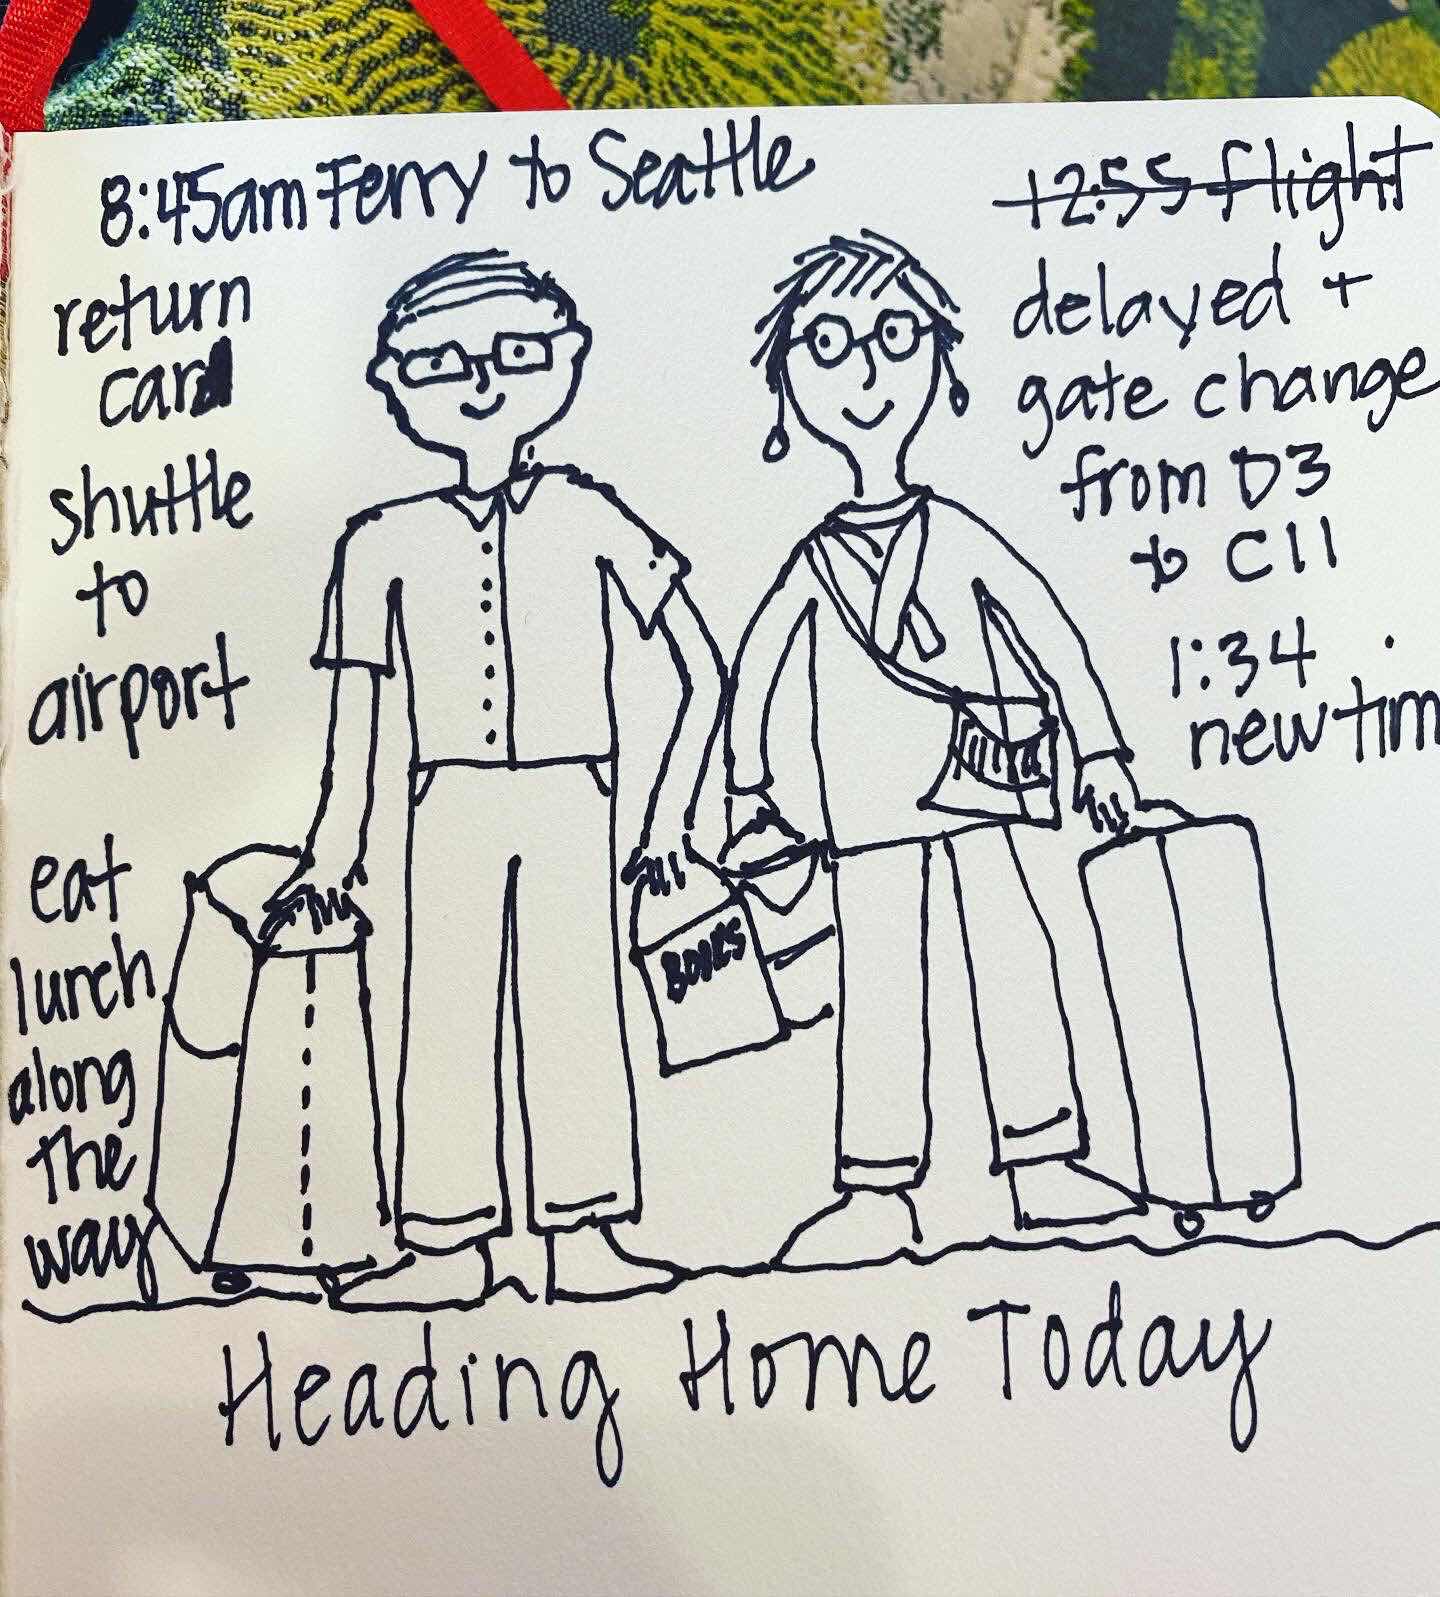 8:45am Ferry to Seattle
return
car
shuttle
to
airport
eat
lunch
along
the
way
12:55 flight
delayed +
gate change
from D3
to C11
1:34
new tim
BOOKS
Heading Home Today